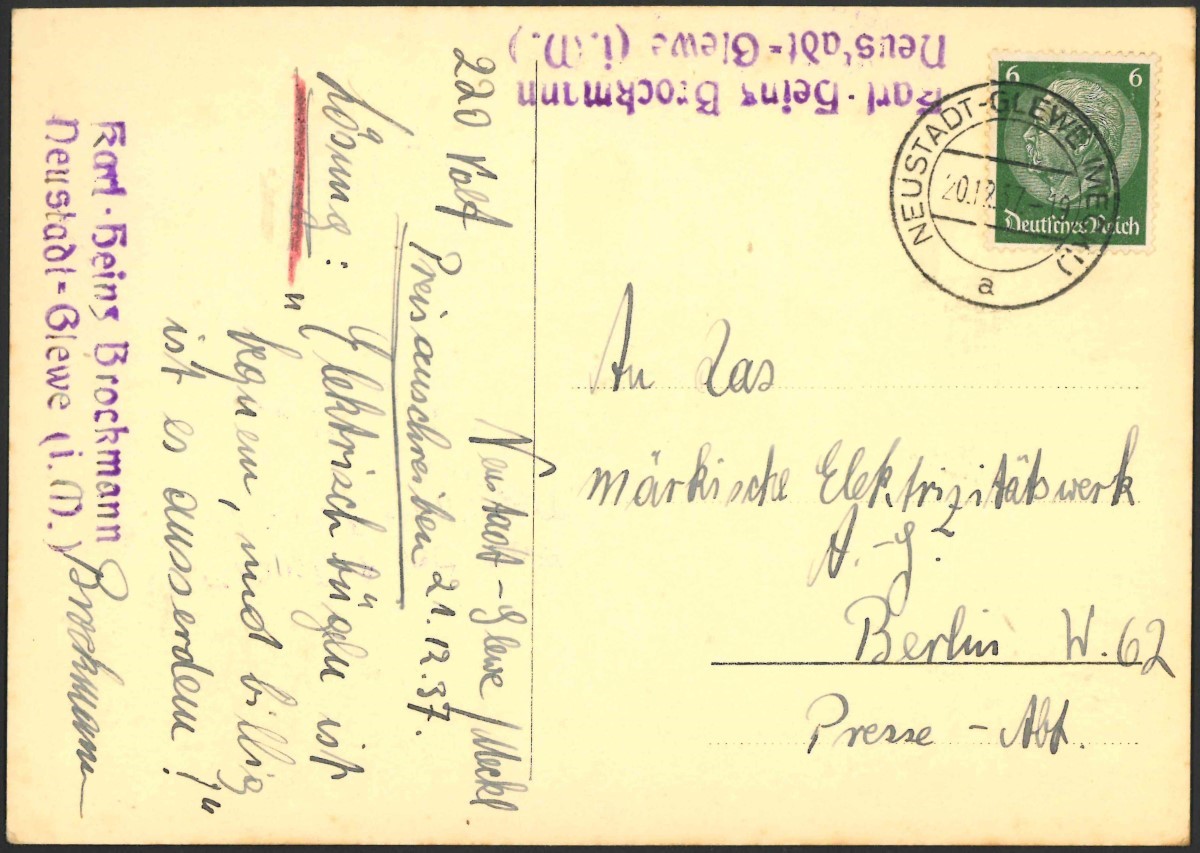 Karl-Heinz Brockmann
Neustadt-Glewe (i.M.)
6 6
Deutsches Reich
NEUSTADT-GLEWE (MECKL)
20.12.37-19
a
An das
Märkische Elektrizitätswerk
A.-G.
Berlin W. 62
Presse-Abt.
Neustadt-Glewe/Meckl
220 Volt
21.12.37.
Preisauschreiben
Lösung:
"Elektrisch bügeln ist
bequem, und billig
ist es ausserdem!"
Brockmann
Karl-Heinz Brockmann
Neustadt-Glewe (i.M.)